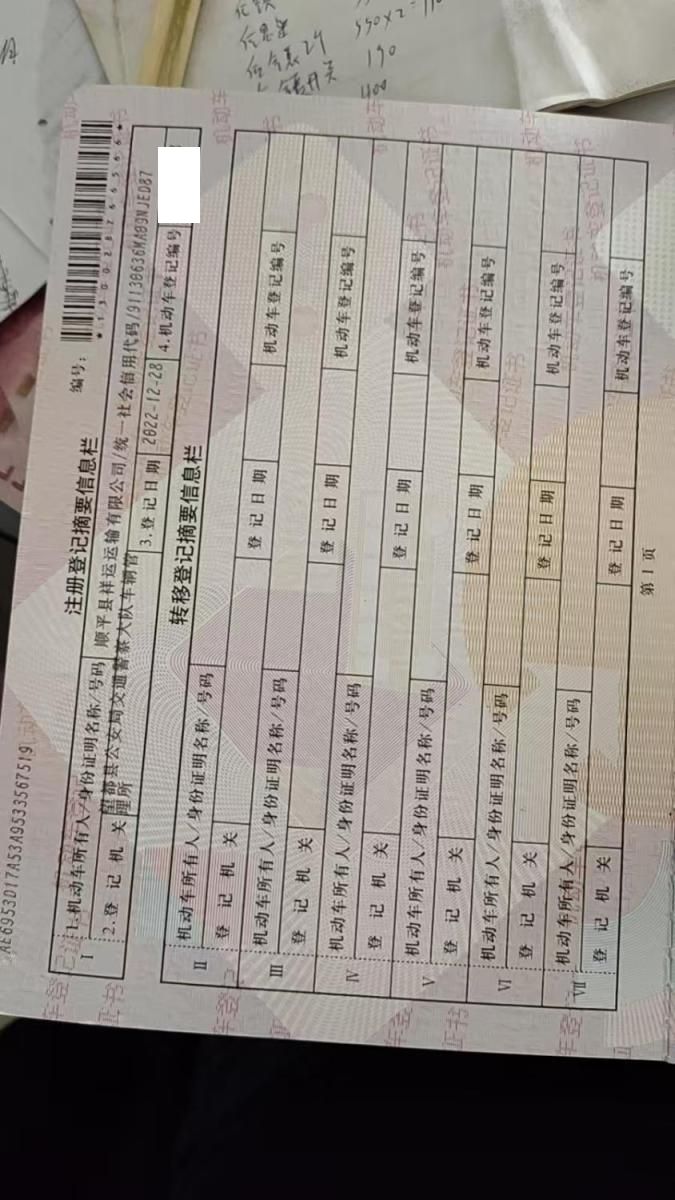 仓表24
190
400
AE6953D17A53A9533567519
注册登记摘要信息栏
编号：
*130028266566*
Ⅰ
1.机动车所有人/身份证明名称/号码 顺平县祥运运输有限公司/统一社会信用代码/91130636MA09NJED87
2.登记机关 望都县公安局交通警察大队车辆管理所
3.登记日期 2022-12-28 4.机动车登记编号
转移登记摘要信息栏
Ⅱ
机动车所有人/身份证明名称/号码
登记机关 登记日期 机动车登记编号
Ⅲ
机动车所有人/身份证明名称/号码
登记机关 登记日期 机动车登记编号
Ⅳ
机动车所有人/身份证明名称/号码
登记机关 登记日期 机动车登记编号
Ⅴ
机动车所有人/身份证明名称/号码
登记机关 登记日期 机动车登记编号
Ⅵ
机动车所有人/身份证明名称/号码
登记机关 登记日期 机动车登记编号
Ⅶ
机动车所有人/身份证明名称/号码
登记机关 登记日期 机动车登记编号
第1页